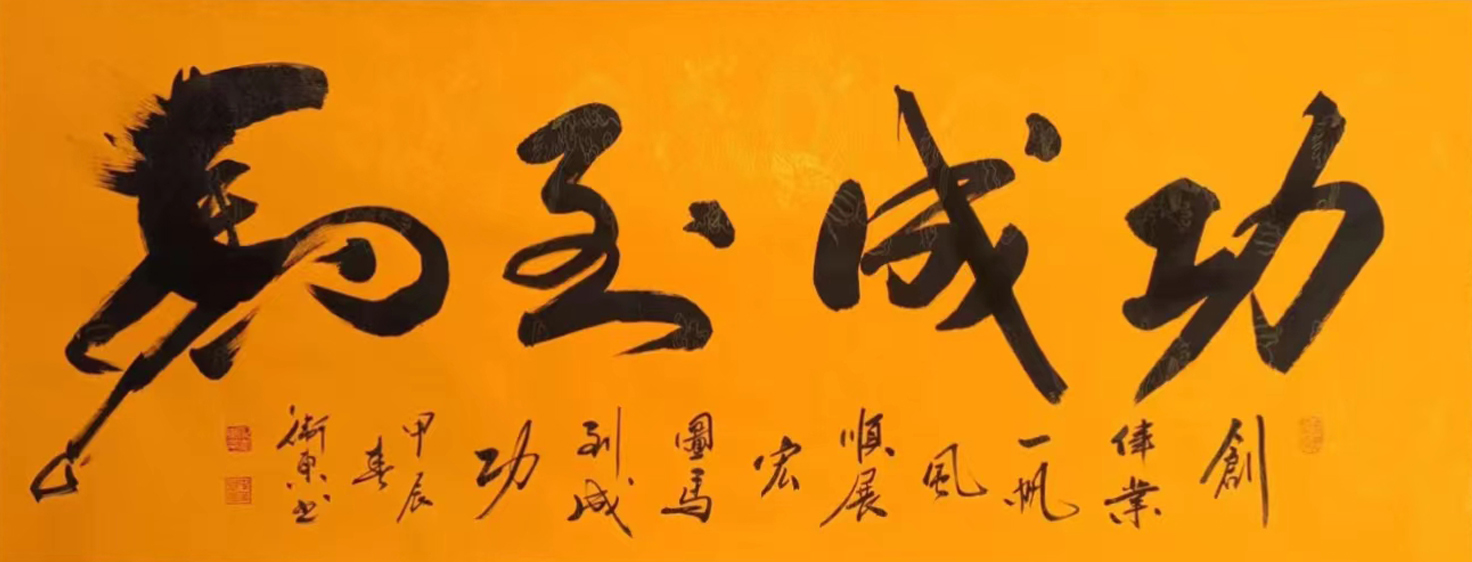 馬到成功
創
偉業
一帆
風
順展
宏
圖馬
到成
功
甲辰
春
衛東书